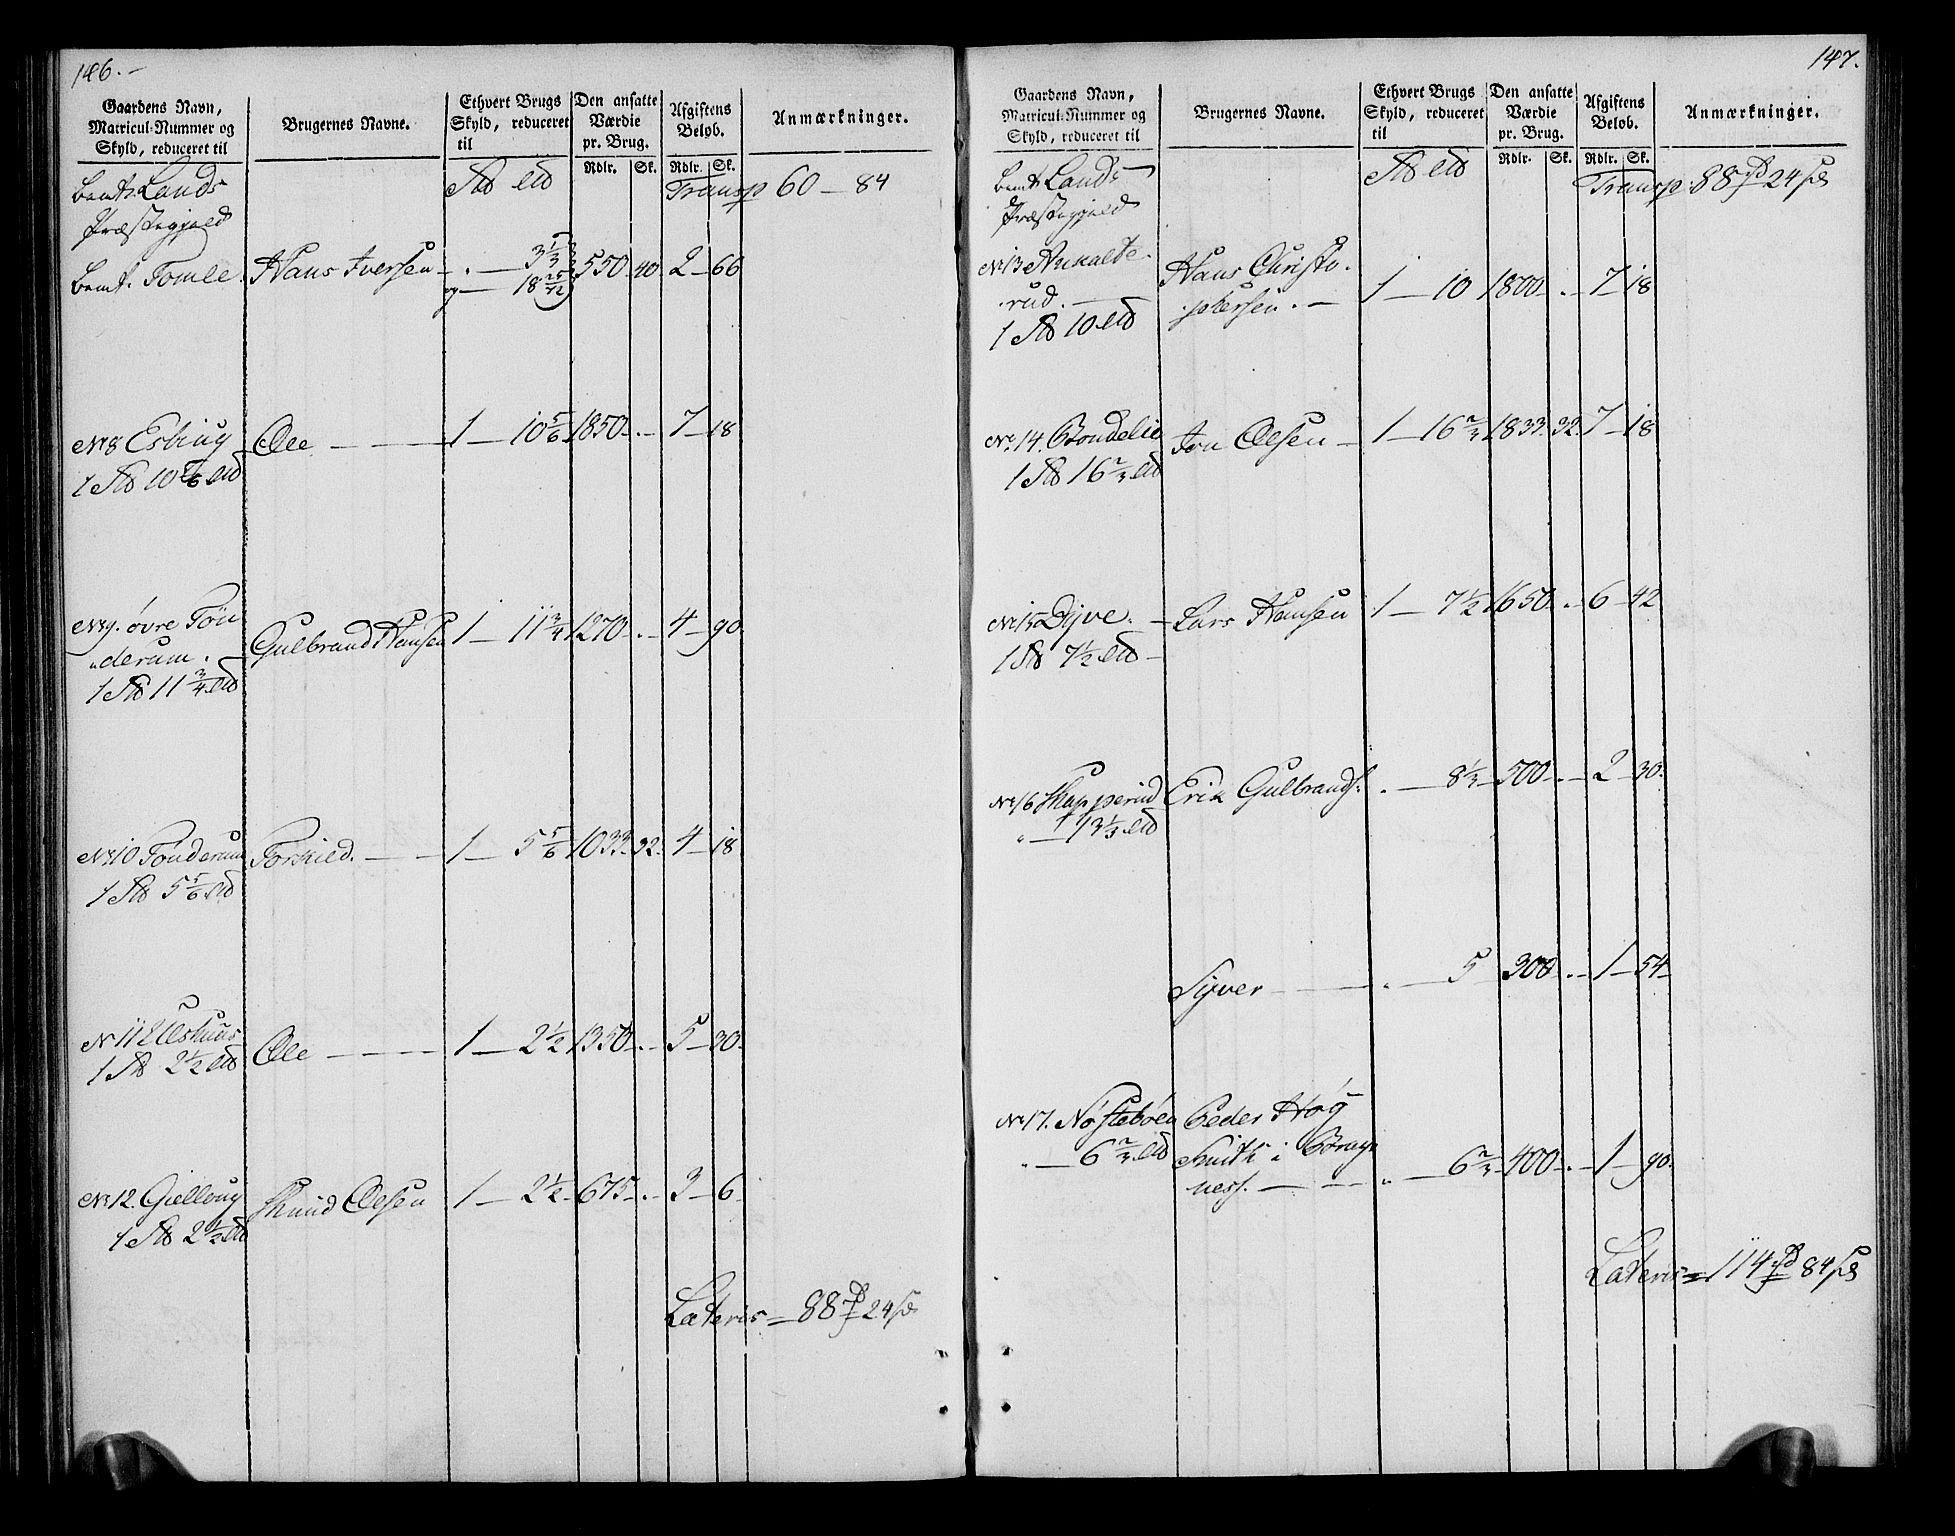 146.
Gaardens Navn, Matricul-Nummer og Skyld, reduceret til
Brugernes Navne.
Ethvert Brugs Skyld, reduceret til
Den ansatte Værdie pr. Brug.
Afgiftens Beløb.
Anmærkninger.
Rdlr. Sk. Rdlr. Sk.
bemt. Lands Transp 60 — 84
Præstegjeld
bemt. Tomle. Hans Iversen — . — 3 1/3
og — 18 25/72 550 40 2 — 66
No 8 Esbiug Ole — 1 — 10 5/6 1850 . 7 — 18
1 10 5/6
No 9. øvre Tøn
derum. Gulbrand Hansen 1 — 11 3/4 1270 . 4 — 90
1 11 3/4
No 10 Tønderum Torkild. — 1 — 5 5/6 1033 32 4 — 18
1 5 5/6
No 11 Ulshuus
1 2 1/2 Ole — 1 — 2 1/2 1350 . 5 — 30
No 12. Gielloug Knud Olsen 1 — 2 1/2 675 . 3 — 6
1 2 1/2
Lateris = 88 24 s
147.
Gaardens Navn, Matricul-Nummer og Skyld, reduceret til
Brugernes Navne.
Ethvert Brugs Skyld, reduceret til
Den ansatte Værdie pr. Brug.
Afgiftens Beløb.
Anmærkninger.
Rdlr. Sk. Rdlr. Sk.
bemt Lands Transp. 88 24 s
Præstegjeld
No 13 Ankalte
rud. Hans Christo
phersen. — 1 — 10 1800 . 7 — 18
1 10
No. 14. Bondelie Jon Olsen — 1 — 16 2/3 1833 32 7 — 18
1 16 2/3
No 15 Dyve. Lars Hansen 1 — 7 1/2 1650 . 6 — 42
1 7 1/2
No 16 Skapperud Erik Gulbrands. . — 8 1/3 500 . 2 — 30
. — 13 1/3
Syver — . — 5 300 . 1 — 54
No 17. Nøstebøen Peder Høg
. — 6 2/3 Smith i Brag
ness. — . — 6 2/3 400 . 1 — 90
Lateris = 114 84 s